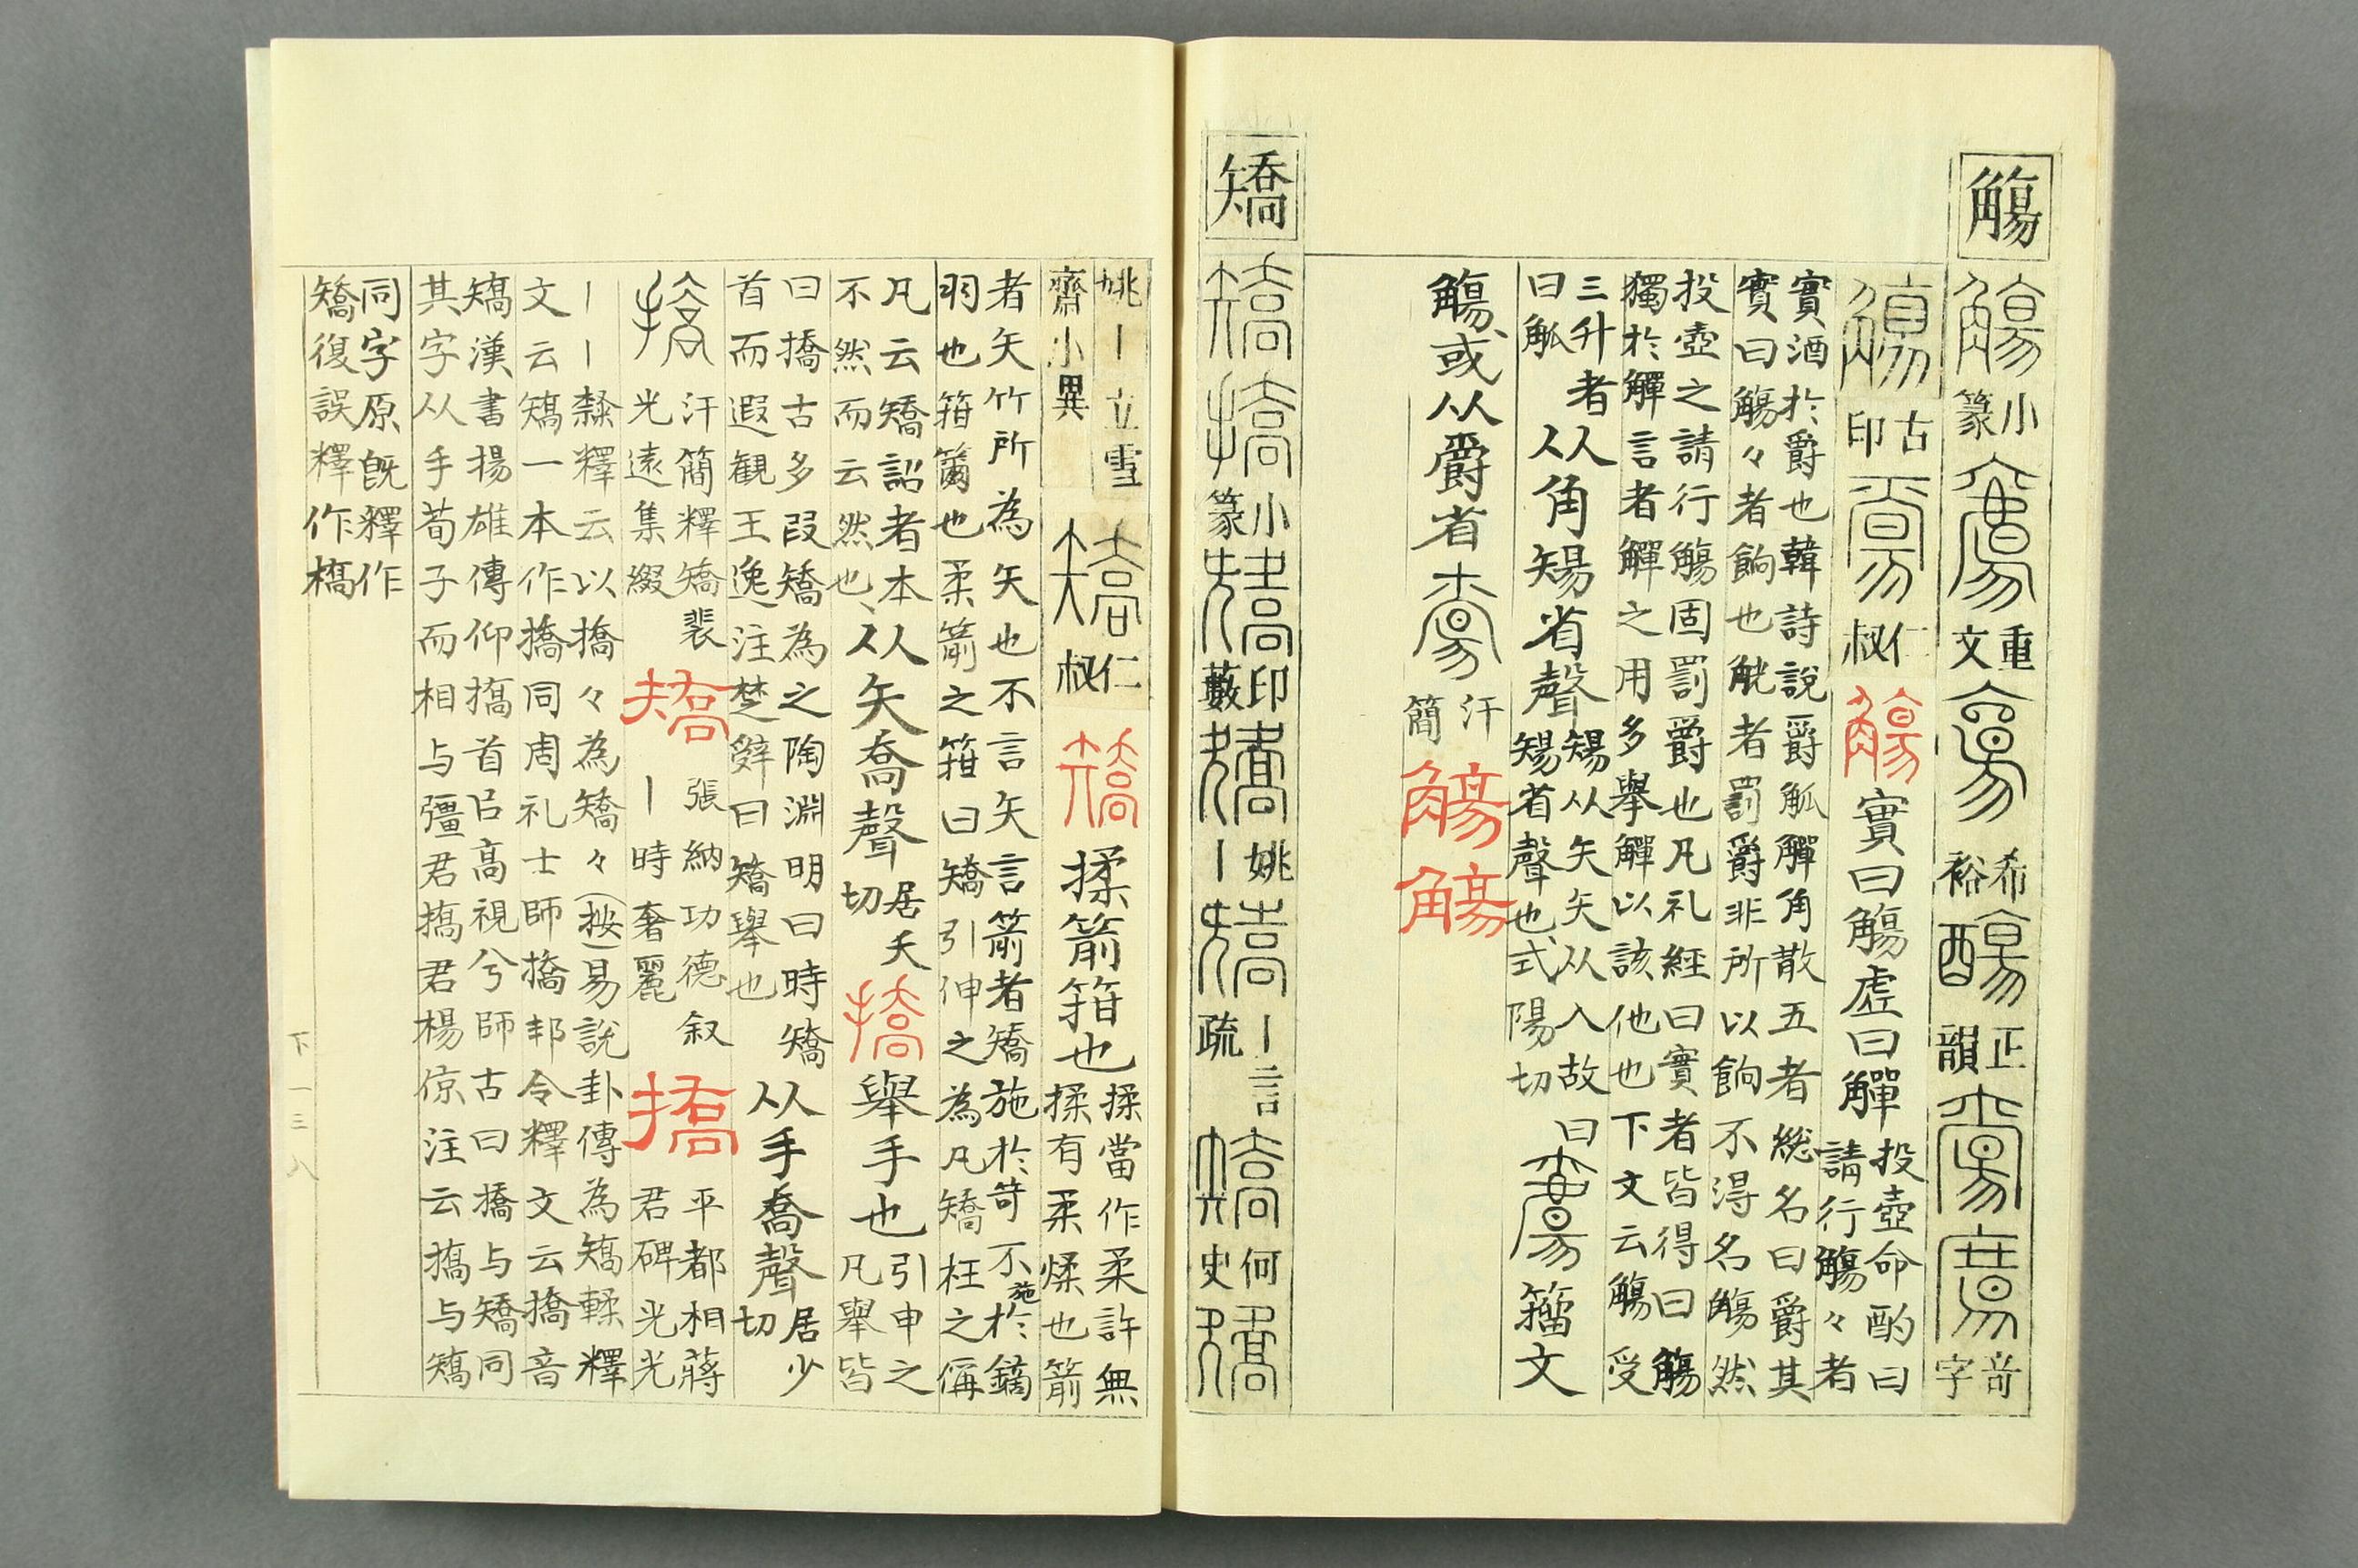 觴
觴小篆觴重文觴希裕觴正韻觴觴奇字
觴古印觴仁叔觴實曰觴虛曰觶投壺命酌曰
請行觴々者
實酒於爵也韓詩說爵觚觶角散五者總名曰爵其
實曰觴々者餉也觥者罰爵非所以餉不得名觴然
投壺之請行觴固罰爵也凡礼經曰實者皆得曰觴
獨於觶言者觶之用多舉觶以該他也下文云觴受
三升者
曰觚
从角𥏻省聲𥏻从矢矢从入故曰
𥏻省聲也式陽切
籀文
觴或从爵省觴汗簡觴觴
矯
矯撟小篆矯印藪矯姚丨矯丨言疏矯何史矯
姚丨立雪
齋小異
矯仁叔矯揉箭箝也揉當作柔許無
揉有柔煣也箭
者矢竹所為矢也不言矢言箭者矯施於笴不施於鏑
羽也箝籋也柔箭之箝曰矯引伸之為凡矯枉之偁
凡云矯詔者本
不然而云然也
从矢喬聲居夭
切
撟舉手也引申之
凡舉皆
曰撟古多叚矯為之陶淵明曰時矯
首而遐觀王逸注楚辭曰矯舉也
从手喬聲居少
切
撟汗簡釋矯裴
光遠集綴
矯張納功德叙
丨時奢麗
撟平都相蔣
君碑光光
丨丨隸釋云以撟々為矯々(按)易說卦傳為矯輮釋
文云矯一本作撟同周礼士師撟邦令釋文云撟音
矯漢書揚雄傳仰撟首㠯高視兮師古曰撟与矯同
其字从手荀子而相与彊君撟君楊倞注云撟与矯
同字原既釋作
矯復誤釋作橋
下一三八